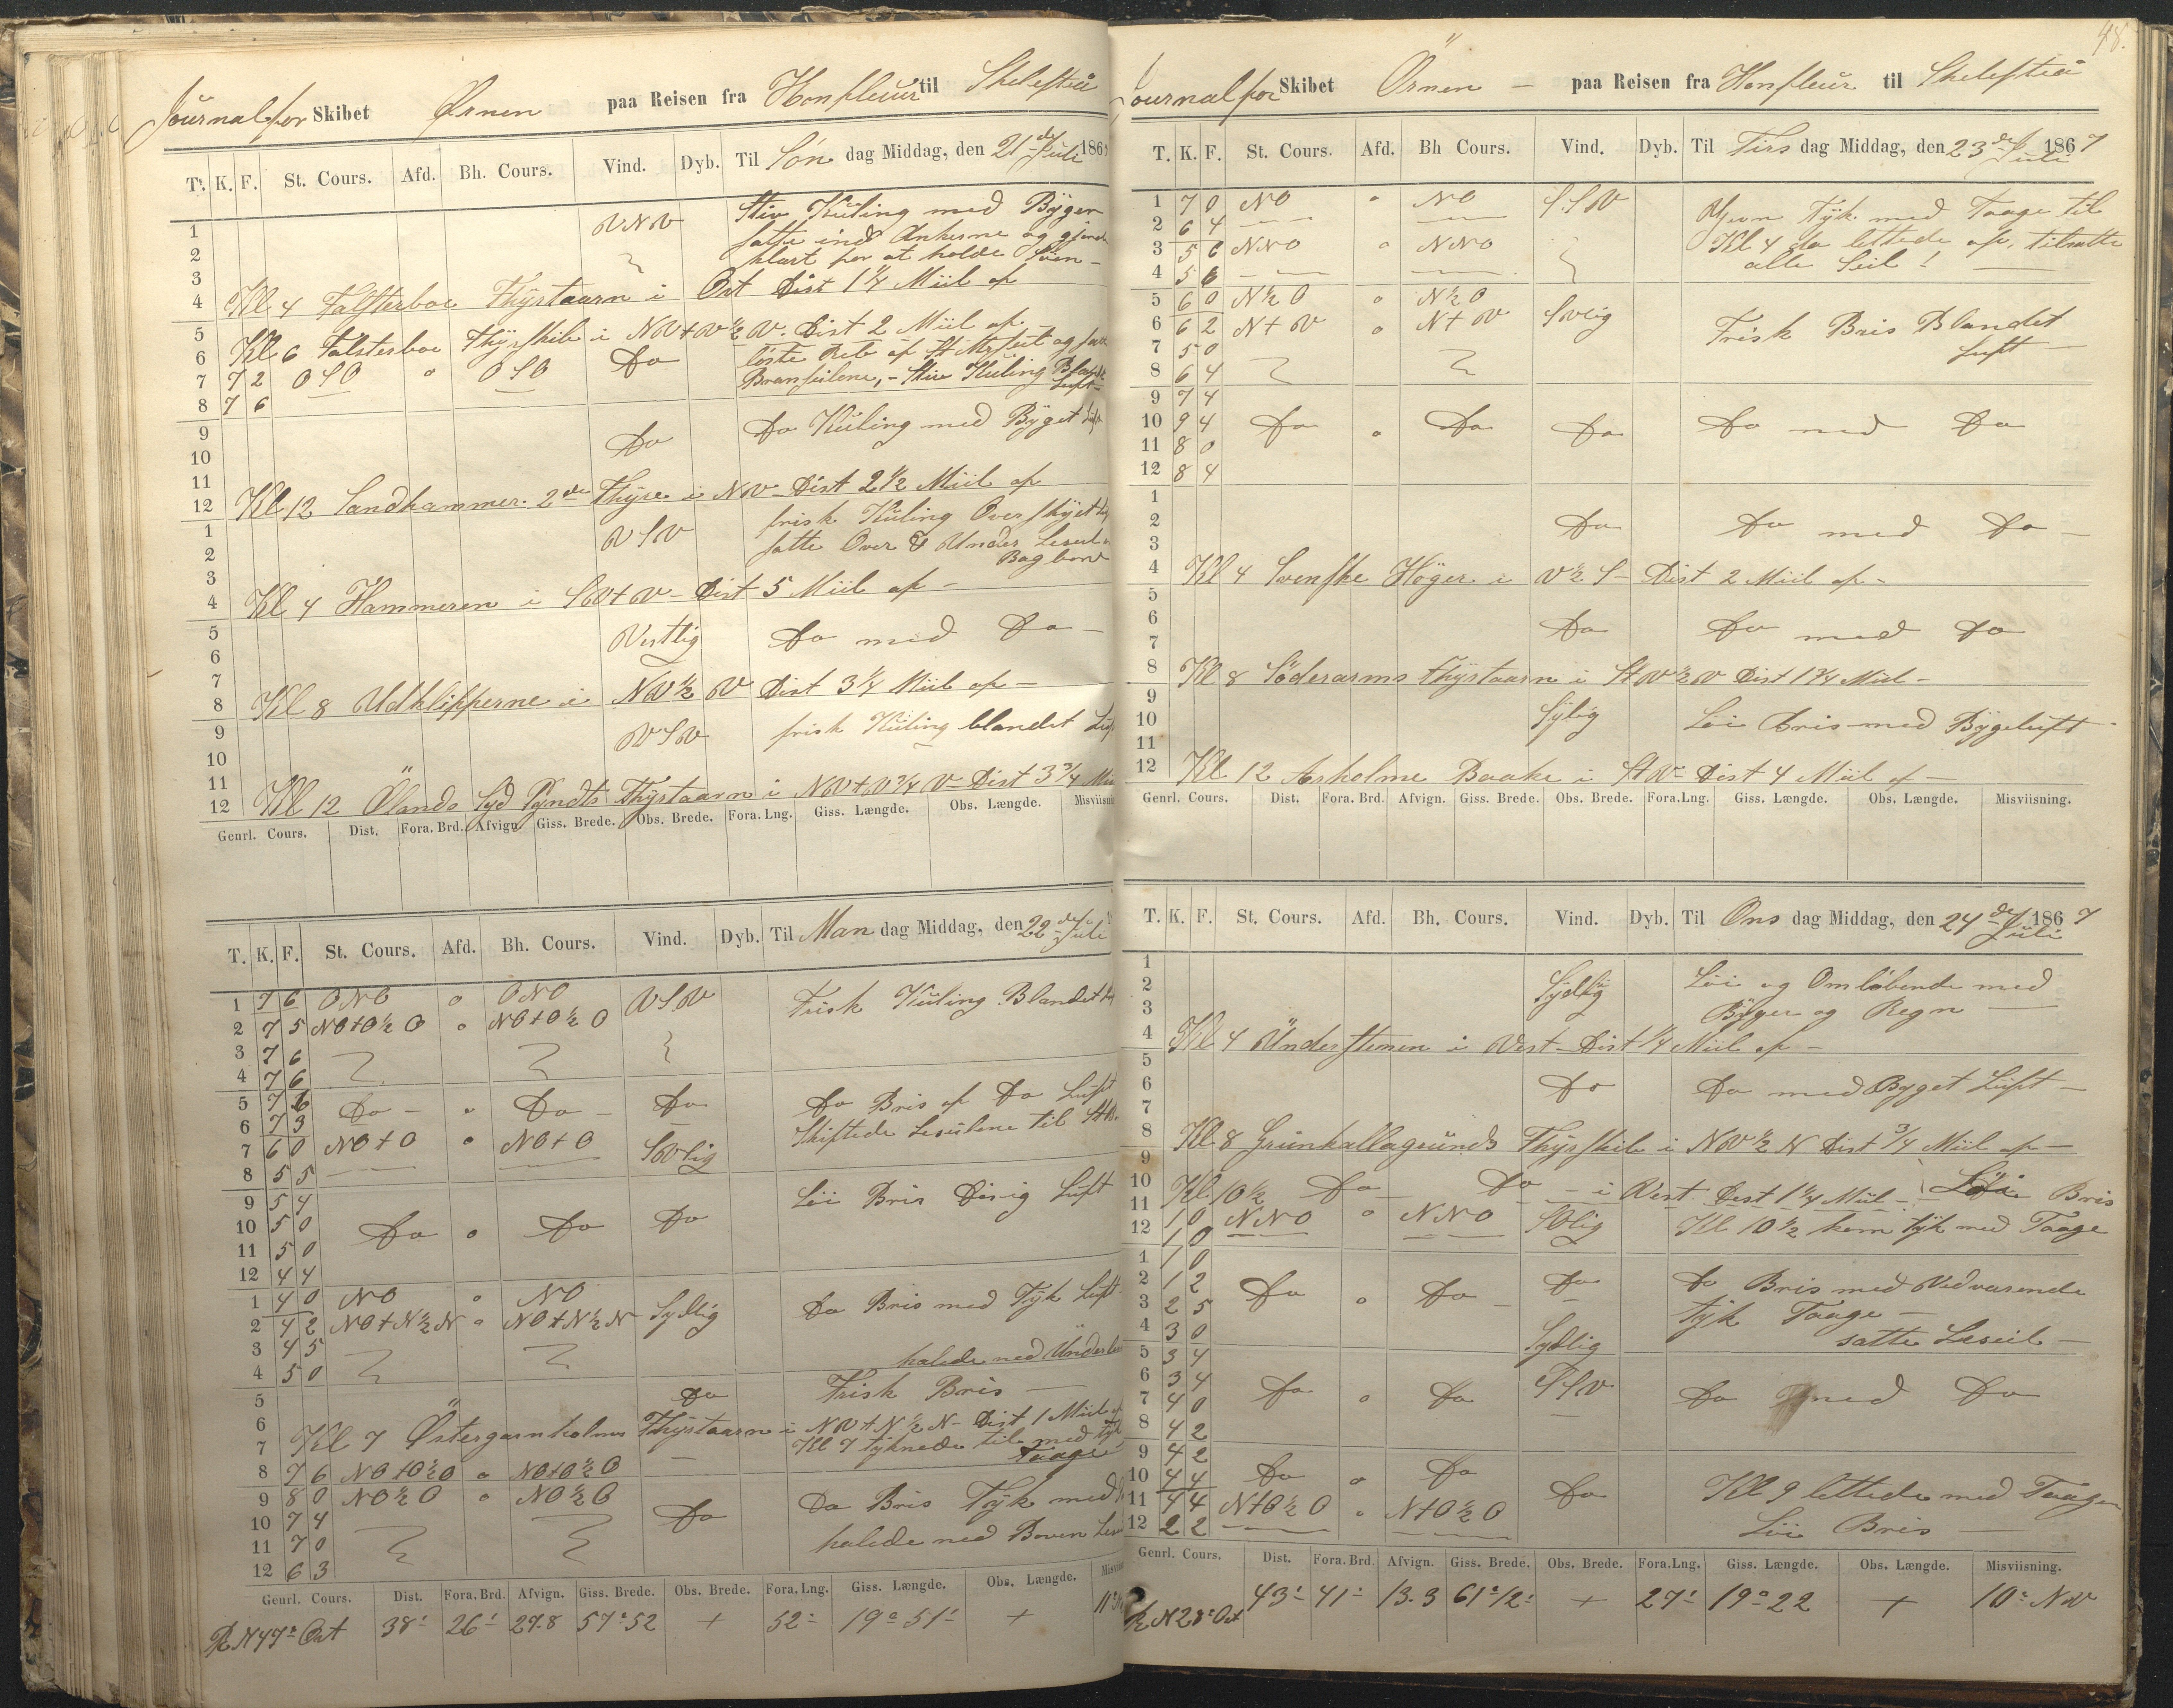 Journal for Skibet Ørnen paa Reisen fra Honfleur til Skelefteå
T. K. F. St. Cours. Afd. Bh. Cours. Vind. Dyb. Til Søn dag Middag, den 21de Juli 186
1 VNV Stiv Kuling med Byger
2 satte ind Ankerne og
3 klart for at holde Søen –
4 Kl 4 Falsterboe Fyrtaarn i Ost Dist 1 1/4 Miil af
5
6 Kl 6 Falsterboe Fyrskib i NV+V 1/2 V. Dist 2 Miil af
7 7 2 OSO " OSO Do løste Reb af St Mersseil og
8 7 6 Bramseilene, – Stiv Kuling Blandt Luft –
9 Do Do Kuling med Byget Luft
10
11
12 Kl 12 Sandhammer. 2de Fyre i NV Dist 2 1/2 Miil af
1 VSV frisk Kuling Overskyet
2 satte Over & Under Læseil
3 Bagbord
4 Kl 4 Hammeren i SV+V – Dist 5 Miil af –
5 Vestlig Do med Do –
6
7
8 Kl 8 Udklipperne i NV 1/2 V Dist 3 1/4 Miil af –
9 VSV frisk Kuling blandet Luft
10
11
12 Kl 12 Ölands Syd Pyndts Fyrtaarn i NV+V 3/4 V – Dist 3 3/4 Miil
Genrl. Cours. Dist. Fora. Brd. Afvign. Giss. Brede. Obs. Brede. Fora. Lng. Giss. Længde. Obs. Længde. Misviisning
T. K. F. St. Cours. Afd. Bh. Cours. Vind. Dyb. Til Man dag Middag, den 22de Juli
1 7 6 ONO o ONO VSV Frisk Kuling Blandet
2 7 5 NO+O 1/2 O o NO+O 1/2 O
3 7 6
4 7 6
5 7 6 Do – " Do – Do Do Bris af Do Luft
6 7 3 Skiftede Læseilene til StB.
7 6 0 NO+O " NO+O SVlig
8 5 5
9 5 4 Löi Bris Disig Luft
10 5 0 Do o Do Do
11 5 0
12 4 4
1 4 0 NO " NO Sydlig Do Bris med Tyk Luft
2 4 2 NO+N 1/2 N " NO+N 1/2 N
3 4 5
4 5 0 halede ned Under
5 Do Frisk Bris –
6
7 Kl 7 Östergarnholms Fyrtaarn i NV+N 1/2 N – Dist 1 Miil af
Kl 7 tyknede til med tyk
8 7 6 NO+O 1/2 O o NO+O 1/2 O – Taage
9 8 0 NO 1/2 O " NO 1/2 O Do Bris Tyk med
10 7 4 Do
11 7 0 halede ned Boven
12 6 3
Genrl. Cours. Dist. Fora. Brd. Afvign. Giss. Brede. Obs. Brede. Fora. Lng. Giss. Længde. Obs. Længde.
R N 47° Ost 38' 26' 27.8 57° 52 + 52' 19° 51' + 11°
48.
Journal for Skibet Örnen – paa Reisen fra Honfleur til Skelefteå
T. K. F. St. Cours. Afd. Bh Cours. Vind. Dyb. Til Tirs dag Middag, den 23de Juli 1867
1 7 0 NO " NO SSV Jevn Tyk med Taage til
2 6 4 Kl 4 da lettede af, tilsatte
3 5 6 NNO o NNO alle Seil!
4 5 6
5 6 0 N 1/2 O " N 1/2 O
6 6 2 N+V o N+V SVlig Frisk Bris Blandet
7 5 0 Luft –
8 6 4
9 7 4
10 9 4 Do " Do Do Do med Do
11 8 0
12 8 4
1
2 Do Do med Do –
3
4 Kl 4 Svenske Höger i V 1/2 S – Dist 2 Miil af –
5
6 Do Do med Do
7
8 Kl 8 Söderarms Fyrtaarn i StV 1/2 V Dist 1 3/4 Miil –
9
10 Sylig Löi Bris med Bygeluft
11
12 Kl 12 Arholme Baake i StV – Dist 4 Miil af –
Genrl. Cours. Dist. Fora. Brd. Afvign. Giss. Brede. Obs. Brede. Fora. Lng. Giss. Længde. Obs. Længde. Misviisning.
T. K. F. St. Cours. Afd. Bh. Cours. Vind. Dyb. Til Ons dag Middag, den 24de Juli 1867
1
2 Sydlig Löi og Omløbende med
3 Byger og Regn –
4 Kl 4 Understenen i Vest – Dist 1/4 Miil af –
5
6 Do Do med Byget Luft –
7
8 Kl 8 Grunkallagrunds Fyrskib i NV 1/2 N Dist 3/4 Miil af –
9
10 Kl 10 1/2 Do – Do – i Vest Dist 1 1/4 Miil – Löi Bris
11 1 0 NNO " NNO SVlig Kl 10 1/2 kom tyk med Taage
12 1 0
1 1 0
2 1 2 Do " Do – Do Do Bris med Vedvarende
3 2 5 tyk Taage –
4 3 0 Sydlig satte Læseil –
5 3 4
6 3 4 Do " Do SSV Do med Do
7 4 0
8 4 2
9 4 2
10 4 4 Do " Do Do Kl 9 lettede med Taagen
11 4 4 N+O 1/2 O " N+O 1/2 O Löi Bris –
12 2 2
Genrl. Cours. Dist. Fora. Brd. Afvign. Giss. Brede. Obs. Brede. Fora. Lng. Giss. Længde. Obs. Længde. Misviisning.
R N 28° Ost 43' 41' 13.3 61° 12' + 27' 19° 22 + 10° NV